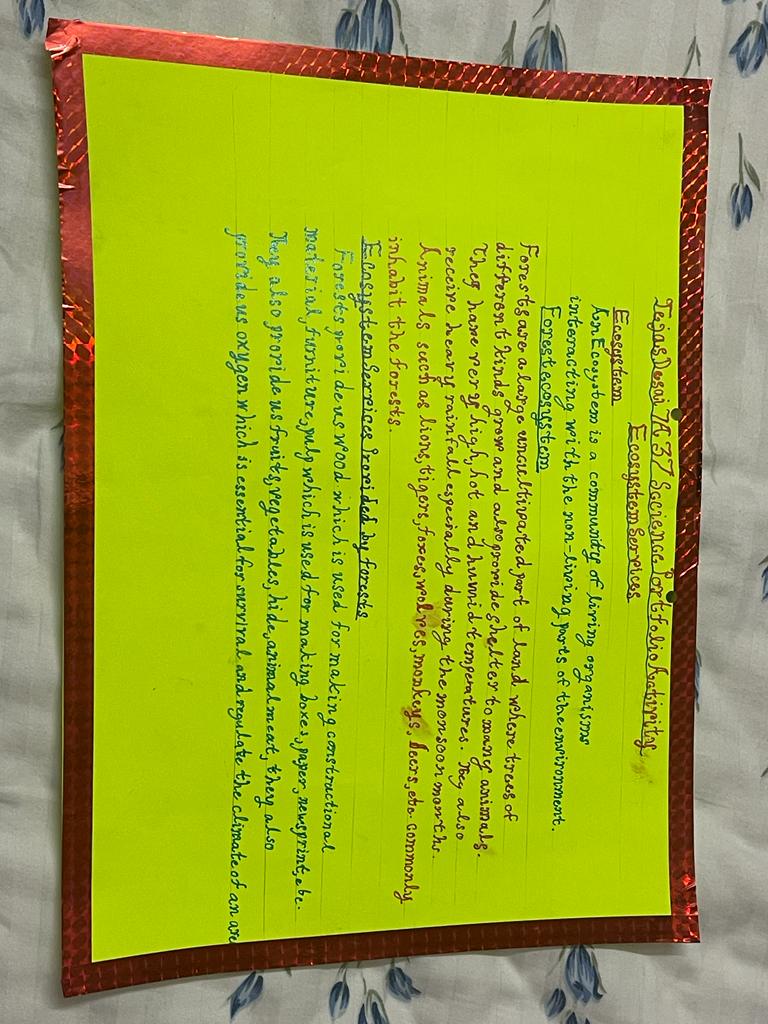 Tejas Desai 7A 37 Secience Portfolio Activity
Ecosystem Services
Ecosystem
An Ecosystem is a community of living organisms
interacting with the non-living parts of the environment.
Forest ecosystem
Forests are a large uncultivated part of land where trees of
different kinds grow and also provide shelter to many animals.
They have very high, hot and humid temperatures. They also
receive heavy rainfall especially during the monsoon months.
Animals such as lions, tigers, foxes, wolves, monkeys, deers, etc. commonly
inhabit the forests.
Ecosystem Services Provided by forests
Forests provide us wood which is used for making constructional
material, furniture, pulp which is used for making boxes, paper, newsprint, etc.
They also provide us fruits, vegetables, hide, animal meat, they also
provide us oxygen which is essential for survival and regulate the climate of an are